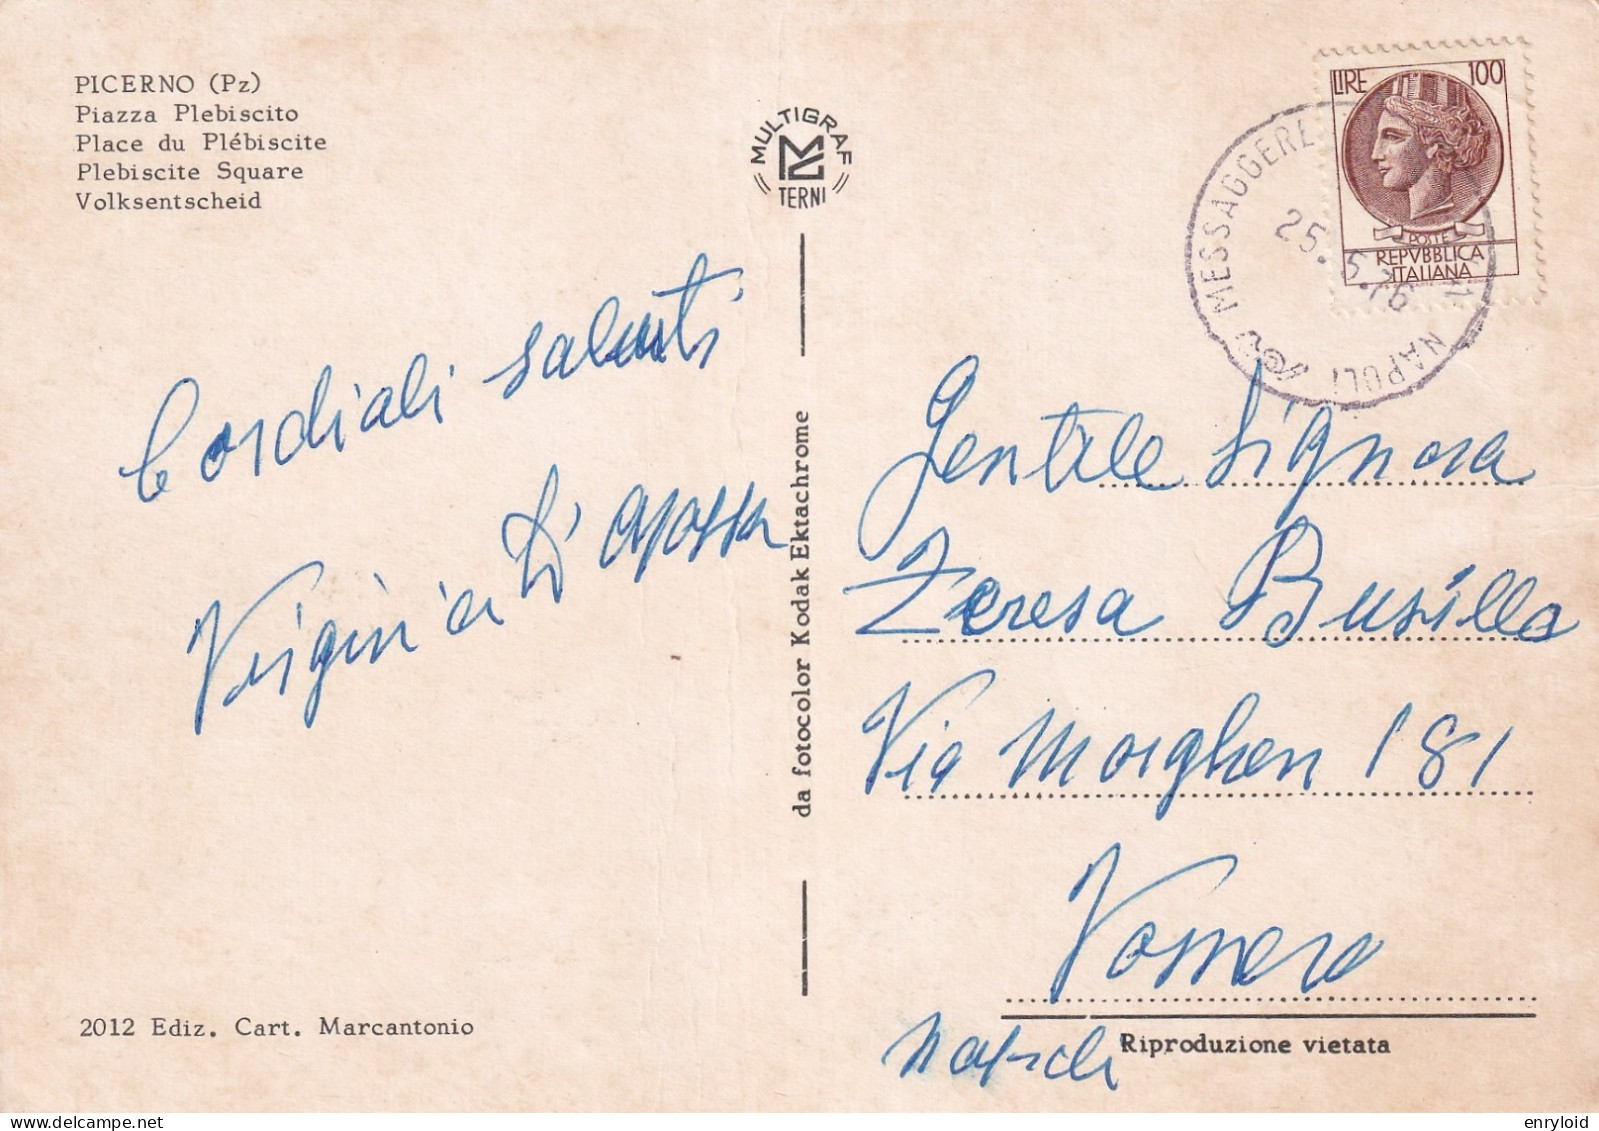 PICERNO (Pz)
Piazza Plebiscito
Place du Plébiscite
Plebiscite Square
Volksentscheid
MULTIGRAF
TERNI
LIRE 100
POSTE
REPVBBLICA
ITALIANA
MESSAGGERE
NAPOLI
25.5.76
Cordiali saluti
Virginia
da fotocolor Kodak Ektachrome
Gentile Signora
Teresa Busillo
Via Morghen 181
Vomero
Napoli
2012 Ediz. Cart. Marcantonio
Riproduzione vietata
enryloid